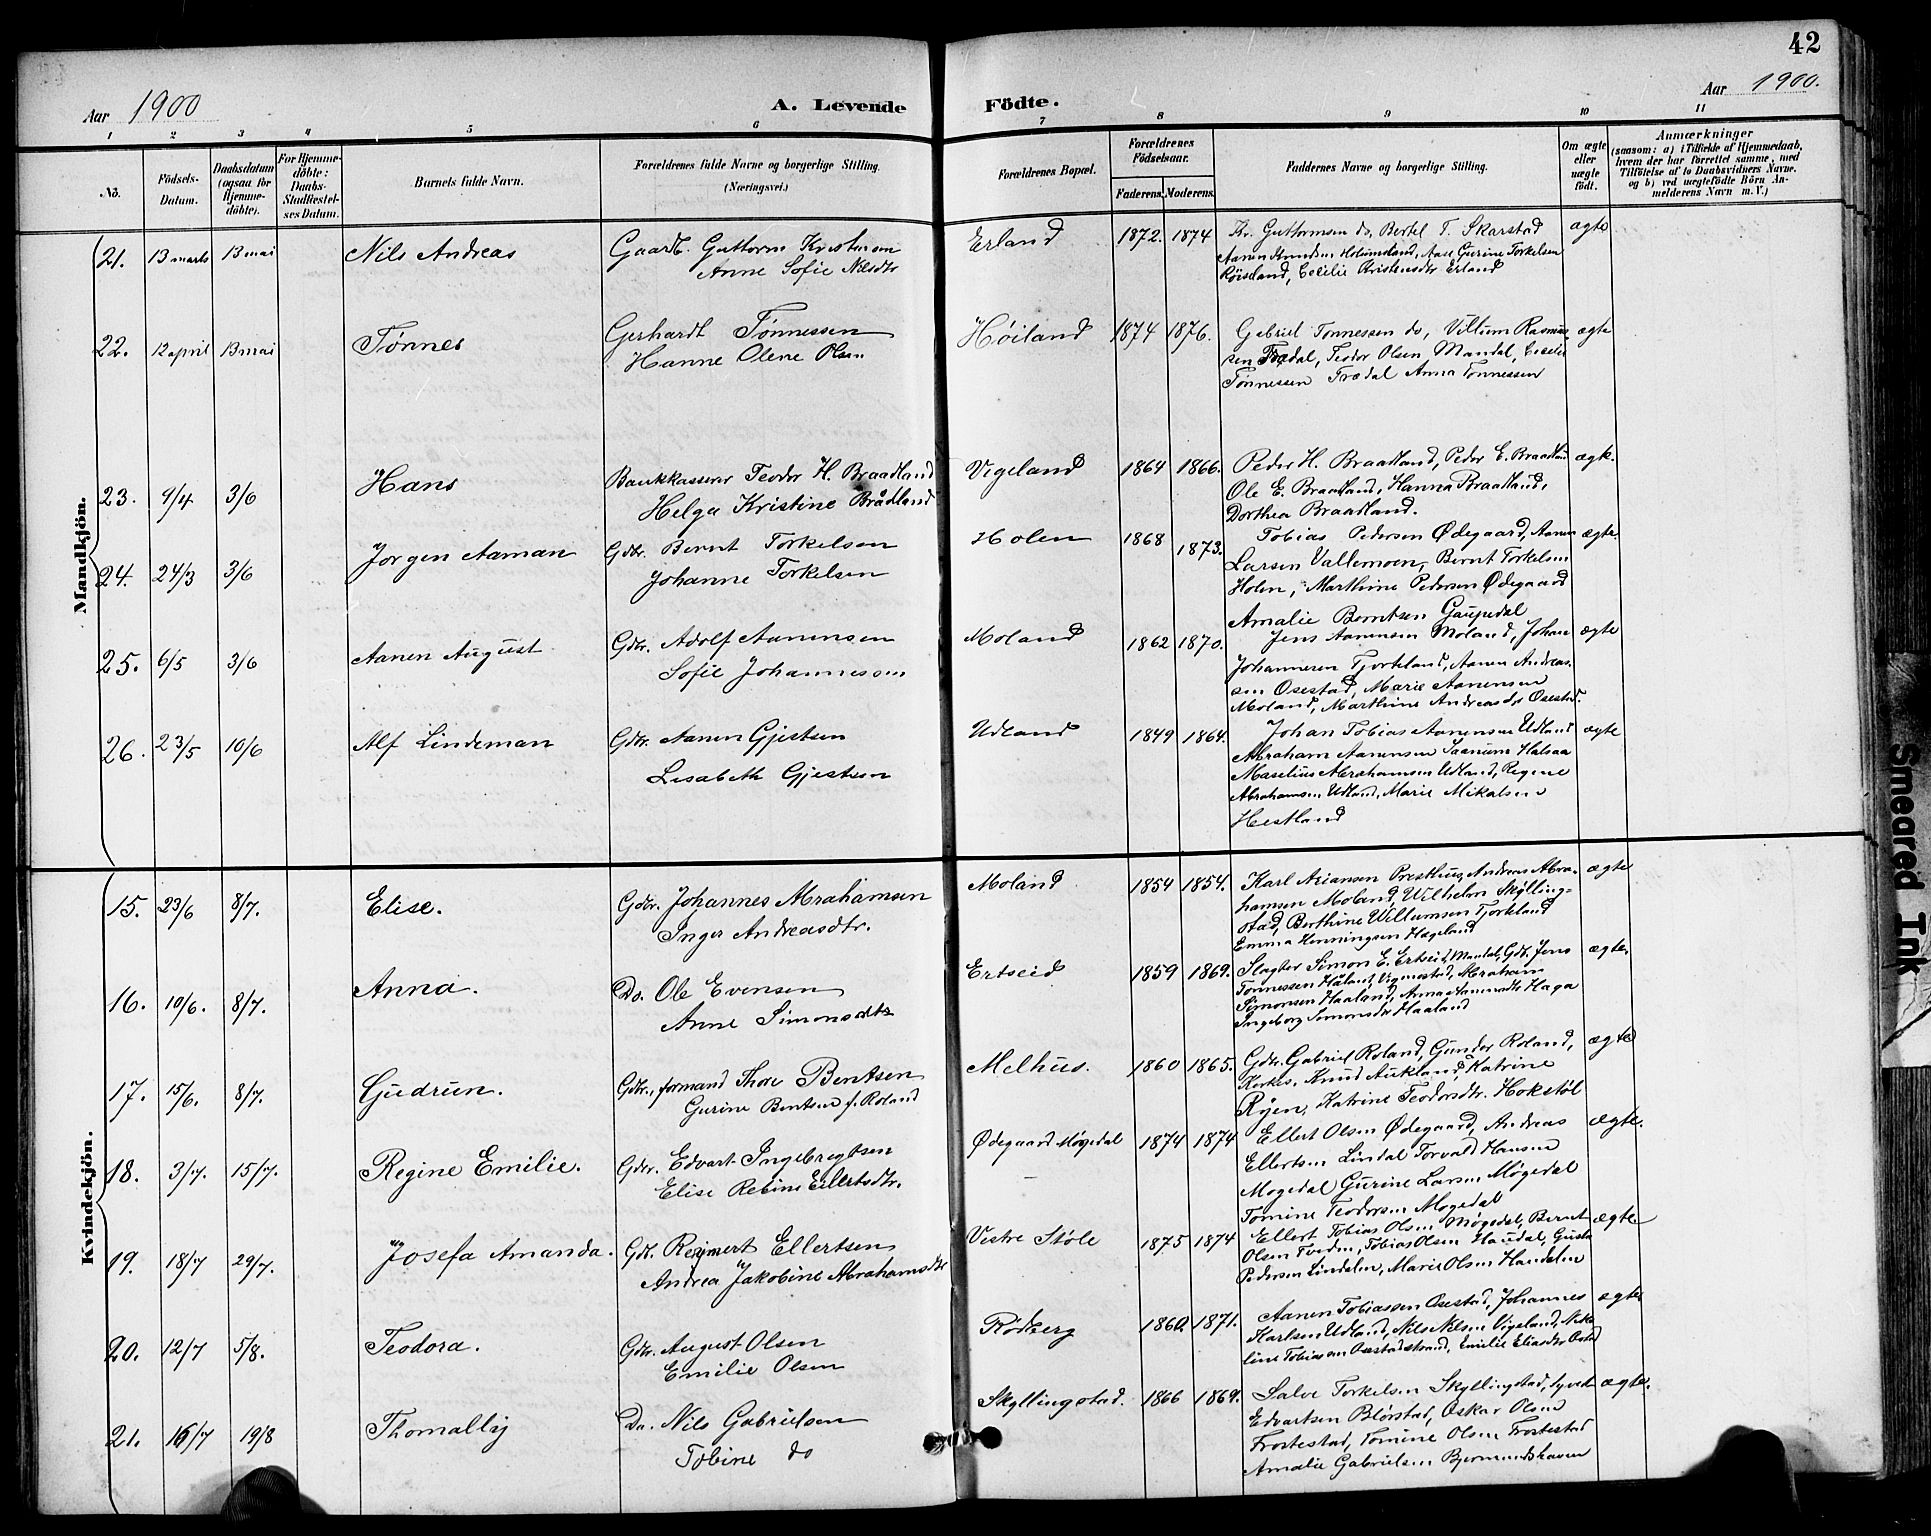 42
Aar 1900
A. Levende Födte.
Aar 1900.
1 2 3 4 5 6 7 8 9 10 11
No.
Födsels-Datum.
Daabsdatum (ogsaa for Hjemme-döbte).
For Hjemme-döbte: Daabs-Stadfæstel-ses Datum.
Barnets fulde Navn.
Forældrenes fulde Navne og borgerlige Stilling.
(Næringsvei.)
Forældrenes Bopæl.
Forældrenes Födselsaar.
Faderens. Moderens.
Faddernes Navne og borgerlige Stilling.
Om ægte eller uægte födt.
Anmærkninger
(saasom: a) i Tilfælde af Hjemmedaab,
hvem der har forrettet samme, med
Tilföielse af to Daabsvidners Navne.
og b) ved uægtefödte Börn An-
melderens Navn m. V.)
Mandkjön.
21. 13 marts 13 mai Nils Andreas Gaardb. Guttorm Kristensen
Anne Sofie Nilsdtr
Erland 1872. 1874 Kr. Guttormsen do, Bertel T. Skarstad ægte
Aanen Knudsen Holumsland, Aase Gurine Torkelsen
Röiseland, Cecilie Kristensdtr Erland
22. 12 april 13 mai Tønnes Gerhardt Tønnessen
Hanne Olene Olsen
Høiland 1874 1876. Gabriel Tønnessen do, Villum Rasmus- ægte
sen Trædal, Teodor Olsen, Mandal, Cecilie
Tønnessen Trædal Anna Tønnessen
23. 9/4 3/6 Hans Bankkasserer Teodor H. Braadland
Helga Kristine Brådland
Vigeland 1864 1866. Peder H. Braadland, Peder E. Braadland ægte.
Ole E. Braadland, Hanna Braadland,
Dorthea Braadland.
24. 24/3 3/6 Jørgen Aaman Gdbr. Bernt Torkelsen
Johanne Torkelsen
Holen 1868 1873. Tobias Pedersen Ødegaard, Aanen ægte.
Larsen Vallemoen, Bernt Torkelsen
Holen, Marthine Pedersen Ødegaard
Amalie Berntsen Gaupedal
25. 6/5 3/6 Aanen August Gdbr. Adolf Aanensen
Sofie Johannessen
Moland 1862 1870. Jens Aanensen Moland, Johan ægte
Johannesen Tjorteland, Aanen Andreas-
sen Osestad, Marie Aanensen
Moland, Marthine Andreasdtr Osestad.
26. 23/5 10/6 Alf Lindeman Gdbr. Aanen Gjestsen
Lisabeth Gjestsen
Udland 1849 1864. Johan Tobias Aanensen Udland ægte
Abraham Aanensen Saanum Halsaa
Maselius Abrahamsen Udland, Regine
Abrahamsen Udland, Marie Mikalsen
Hestland
Kvindekjön.
15. 23/6 8/7. Elise. Gdbr. Johannes Abrahamsen
Inger Andreasdtr.
Moland 1854 1854. Karl Ariansen Presthus, Andreas Abra- ægte
hamsen Moland, Wilhelm Skylling-
stad, Berthine Willumsen Tjorteland
Emma Henningsen Hageland
16. 10/6. 8/7. Anna. Do. Ole Evensen
Anne Simonsdtr
Ertseid 1859 1869. Slagter Simon E. Ertseid, Mandal, Gdb. Jens ægte.
Tønnessen Håland, Vigmostad, Abraham
Simonsen Haaland, Anna Aanensdtr Haga
Ingeborg Simonsdtr Haaland
17. 15/6. 8/7. Gudrun. Gdbr., formand Thore Bentsen
Gurine Bentsen f. Roland
Melhus. 1860 1865. Gdbr. Gabriel Roland, Gunder Roland, ægte
Kirkes. Knud Aukland, Katrine
Röjen, Katrine Teodorsdtr. Hokstöl
18. 3/7. 15/7. Regine Emilie. Gdbr. Edvart Ingebregtsen
Elise Regine Ellertsdtr.
Ødegaard Møgedal 1874 1874 Ellert Olsen Ødegaard, Andreas ægte.
Ellertsen Lindal Torvald Hansen
Møgedal Gurine Larsen Møgedal
Tomine Teodorsen Møgedal
19. 18/7 29/7. Josefa Amanda. Gdb. Regmert Ellertsen
Andrea Jakobine Abrahamsdtr
Vestre Støle 1875 1874 Ellert Tobias Olsen Møgedal, Bernt ægte
Olsen, Tobias Olsen Haudal, Gusta
Pedersen Lindelien, Marie Olsen
20. 12/7 5/8. Teodora. Gdbr. August Olsen
Emilie Olsen
Rødberg 1860. 1871. Aanen Tobiassen Osestad, Johannes ægte
Karlsen Udland, Nils Nilsen Vigeland, Niko-
line Tobiassen Osestadstrand, Emilie Eliasdtr Osestad
21. 16/7 19/8 Thomally Do. Nils Gabrielsen
Tobine do
Skyllingstad. 1866 1869. Salve Torkelsen Skyllingstad, Syvert ægte.
Edvartsen Blørstad, Oskar Olsen
Frostestad, Tomine Olsen Frostestad
Amalie Gabrielsen Bjermundshaven
Smeared Ink